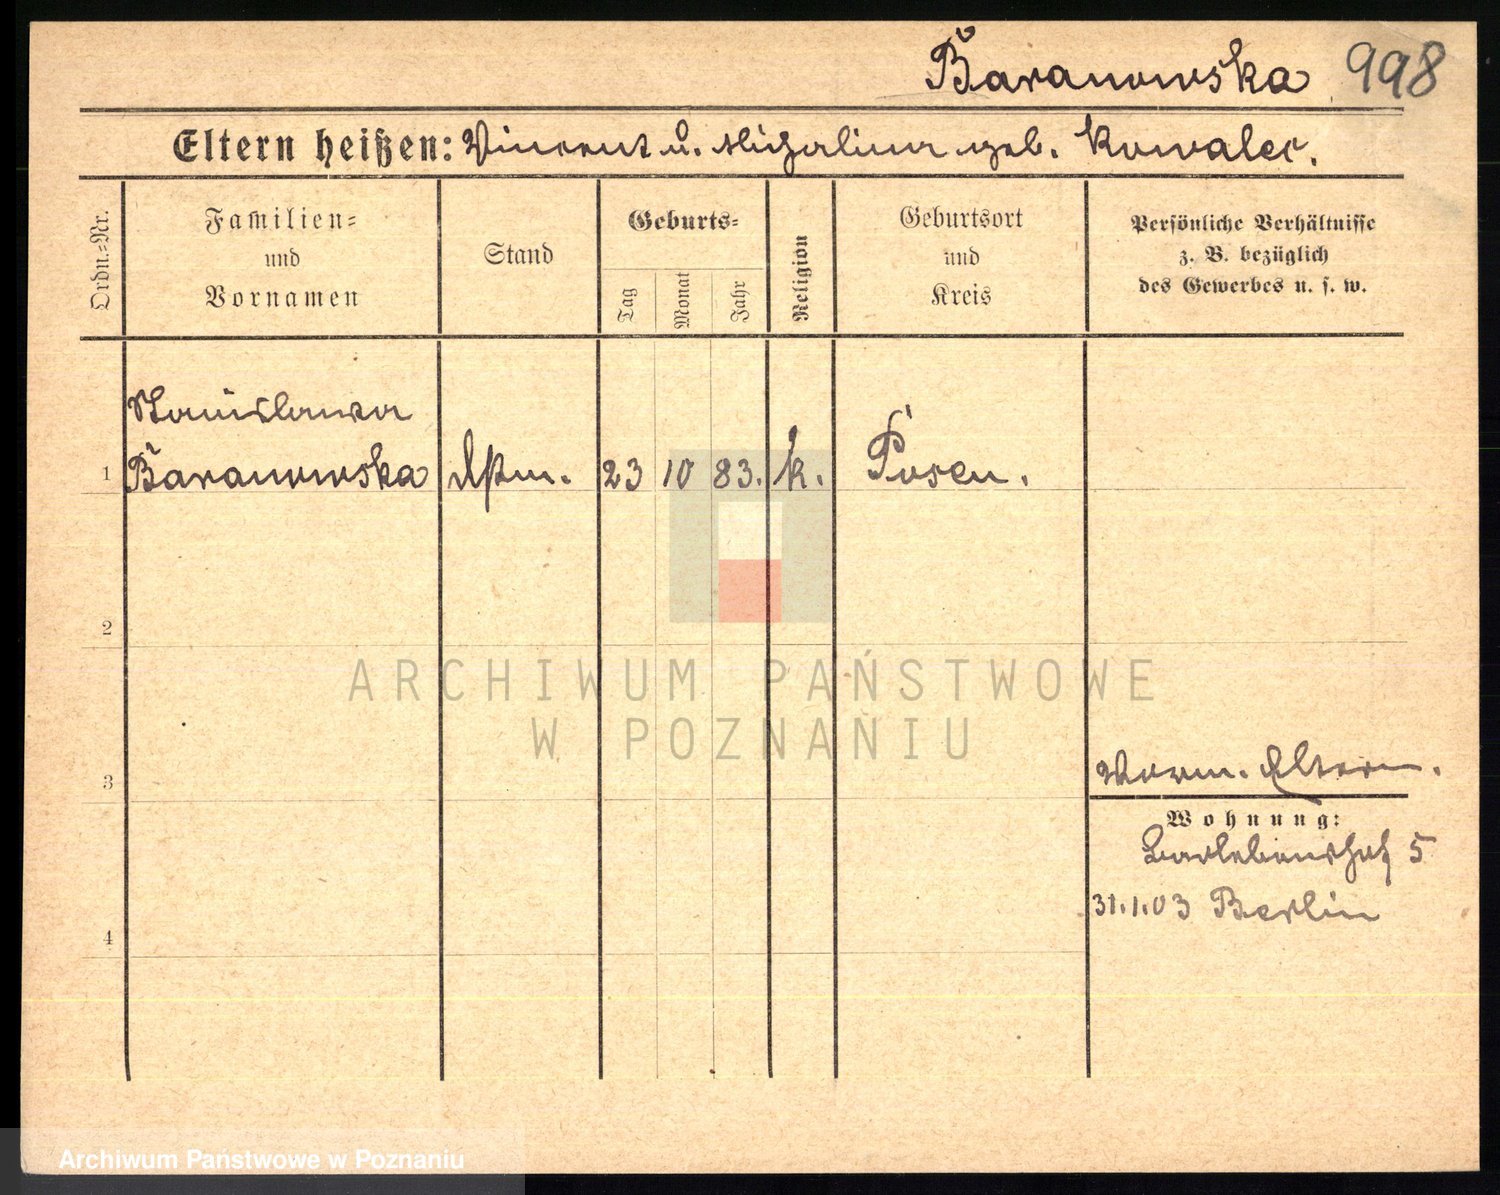 Baranowska 998
Eltern heißen: Vincent u. Michalina geb. Kowalec.
Ordn.=Nr.
Familien=
und
Vornamen
Stand
Geburts=
Tag
Monat
Jahr
Religion
Geburtsort
und
Kreis
Persönliche Verhältnisse
z. B. bezüglich
des Gewerbes u. s. w.
Stanislawa
1 Baranowska 23 10 83. k. Posen.
2
ARCHIWUM PAŃSTWOWE
W POZNANIU
3 Eltern.
Wohnung:
5
31.1.03 Berlin
4
Archiwum Państwowe w Poznaniu